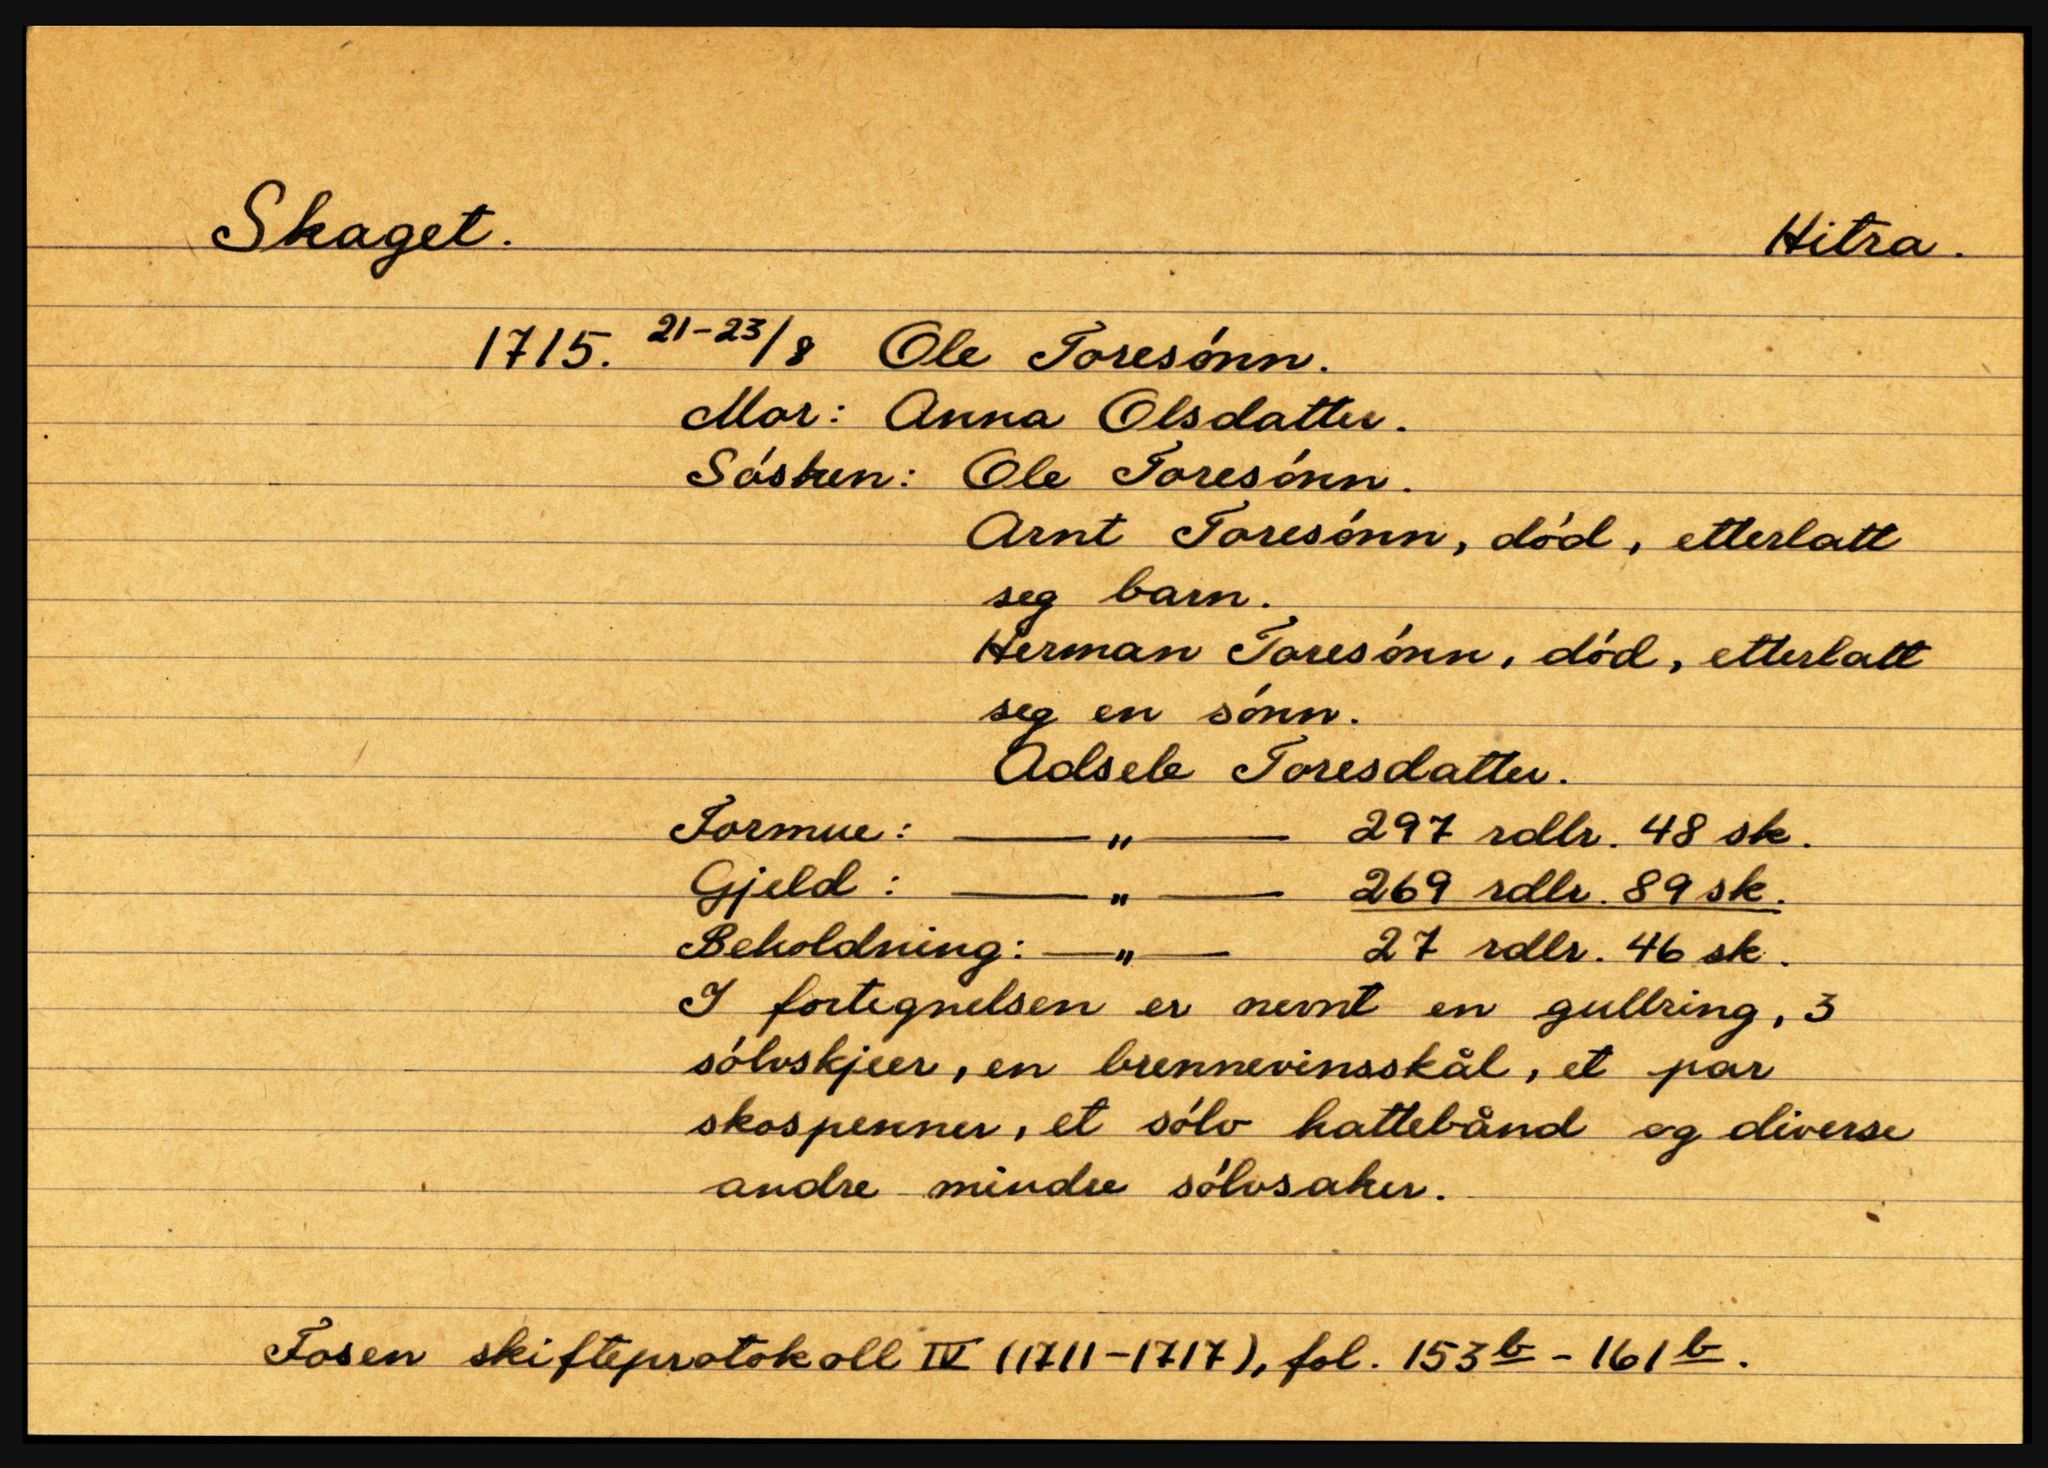 Skaget. Hitra.
1715. 21-23/8 Ole Toresónn.
Mor: Anna Olsdatter.
Sósken: Ole Toresónn.
Arnt Toresónn, dód, etterlatt
seg barn.
Herman Toresónn, dód, etterlatt
seg en sónn.
Adsele Toresdatter.
Formue: — „ — 297 rdlr. 48 sk.
Gjeld: — „ — 269 rdlr. 89 sk.
Beholdning: — „ — 27 rdlr. 46 sk.
I fortegnelsen er nevnt en gullring, 3
sólvskjeer, en brennevinsskål, et par
skospenner, et sólv hattebånd og diverse
andre mindre sólvsaker.
Fosen skifteprotokoll IV (1711-1717), fol. 153b - 161b.